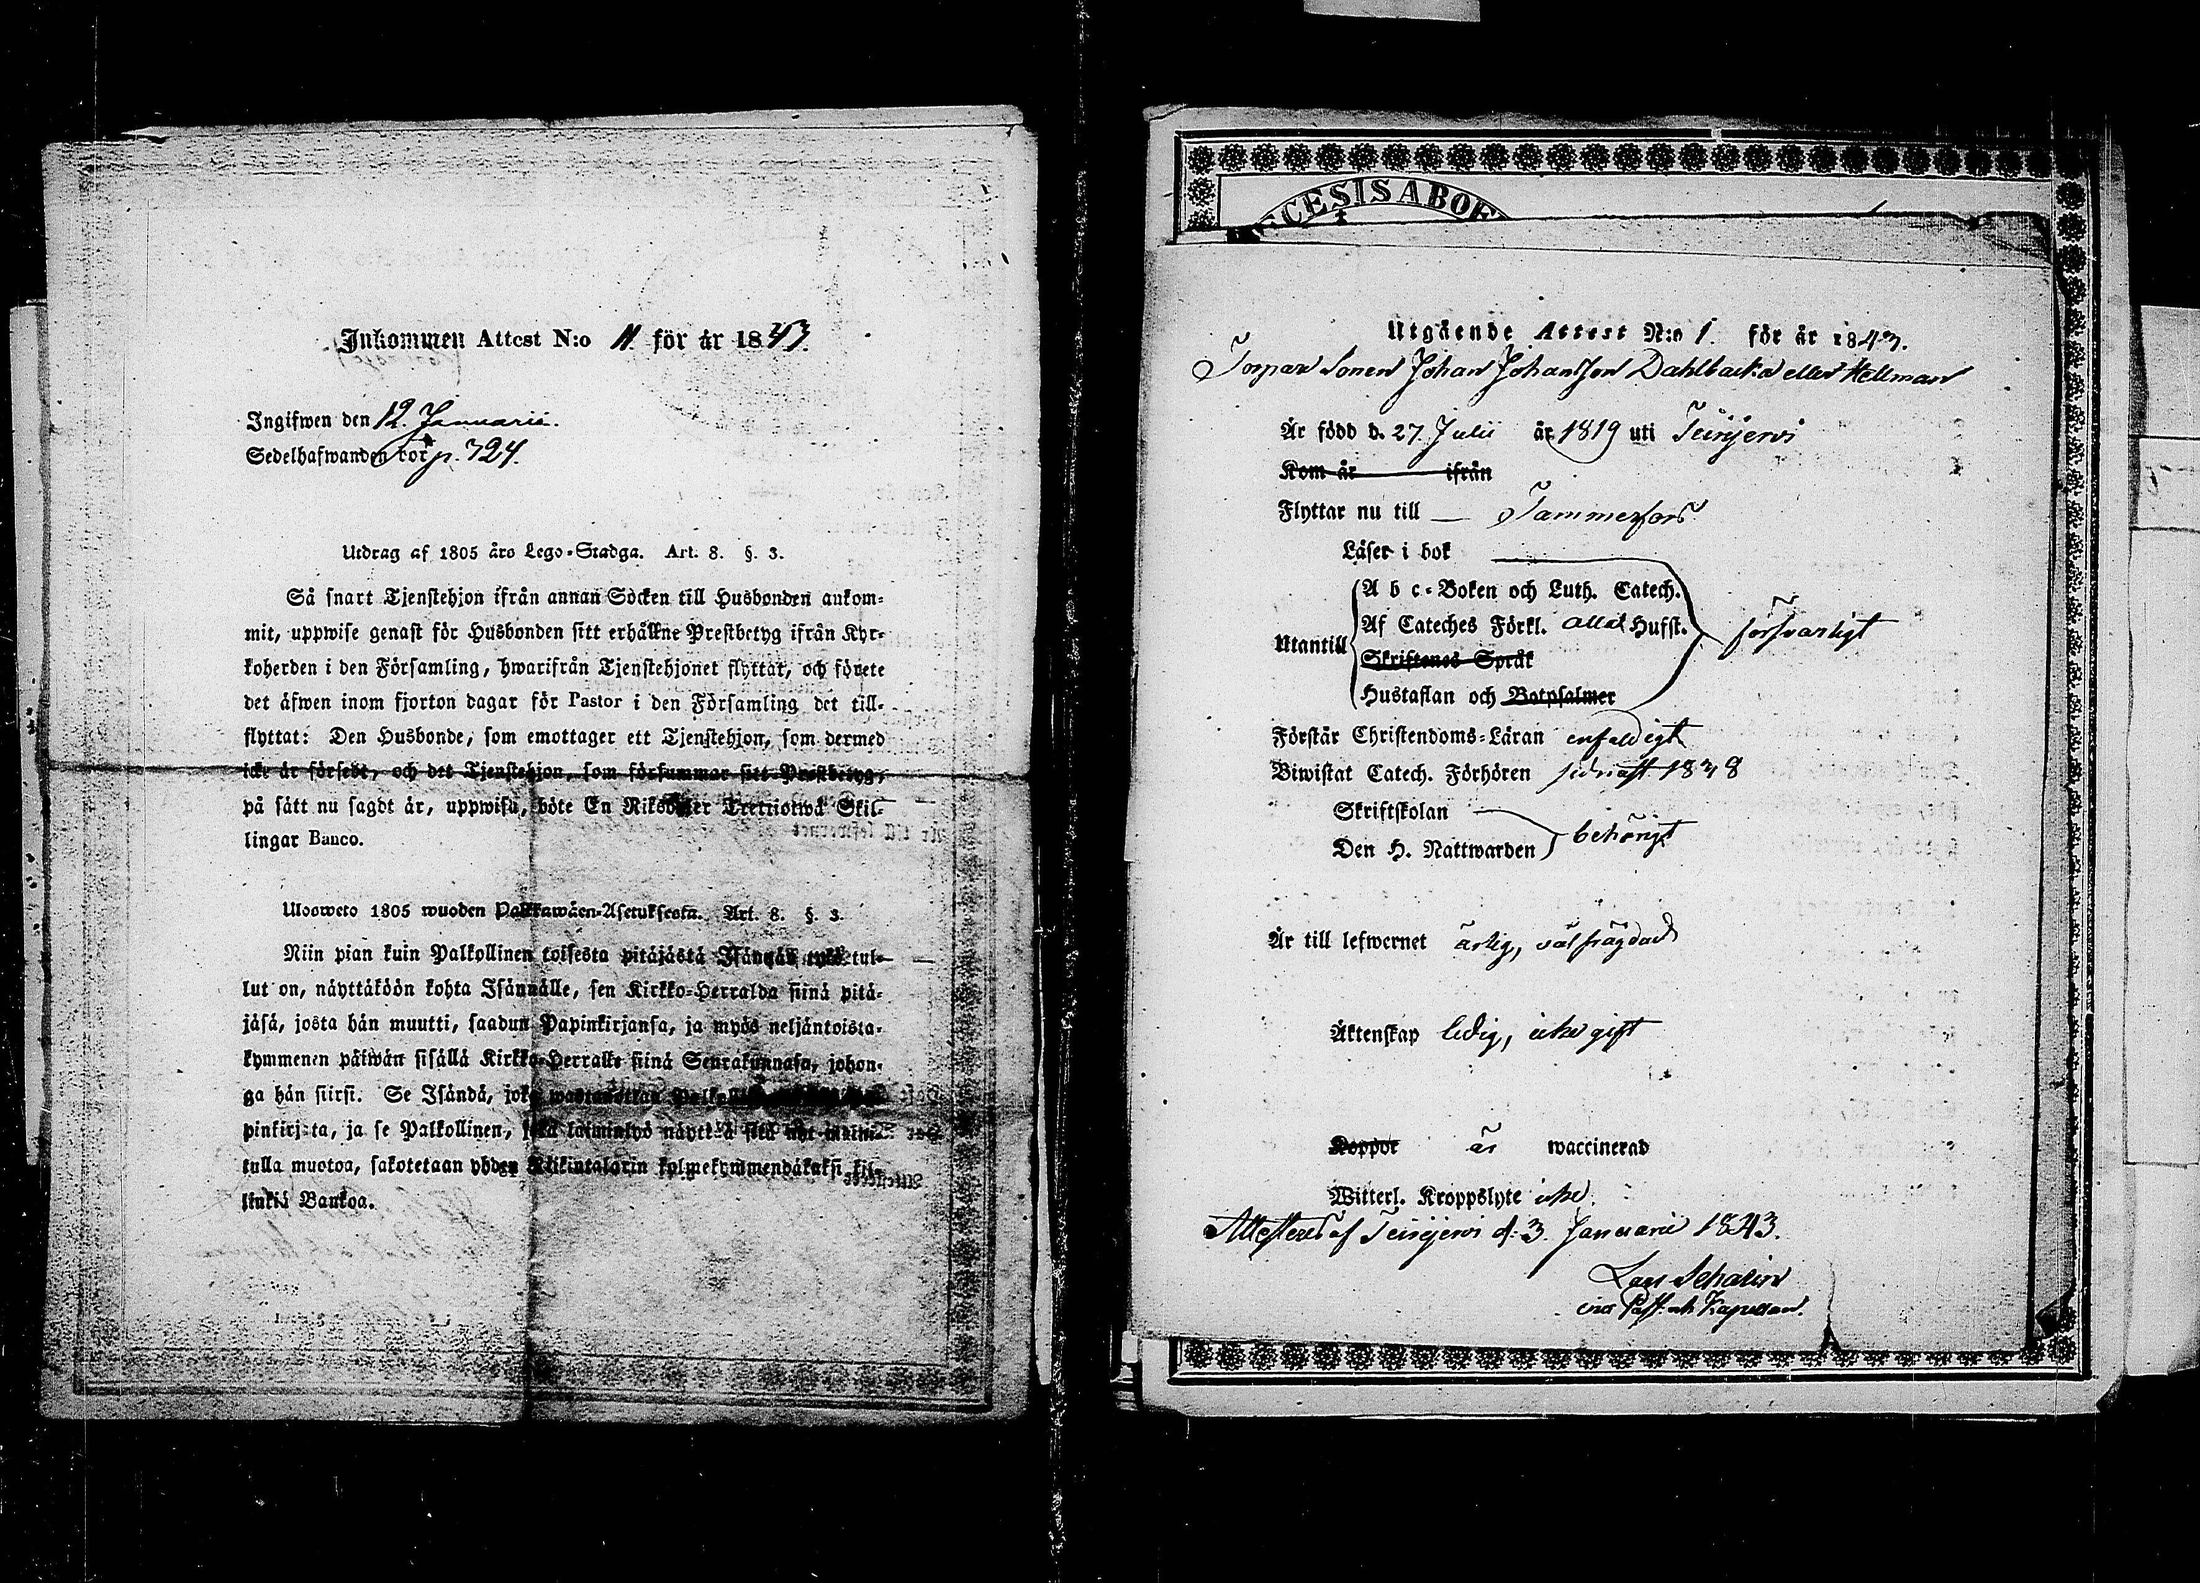 Inkommen Attest N:o 11. för år 1843.
Ingifwen den 12. Januarii.
Sedelhafwanden förp. 724.
Utdrag af 1805 års Lego-Stadga. Art. 8. §. 3.
Så snart Tjenstehjon ifrån annan Socken till Husbonden ankom-
mit, uppwise genast för Husbonden sitt erhållne Prestbetyg ifrån Kyr-
koherden i den Församling, hwarifrån Tjenstehjonet flyttat, och förete
det äfwen inom fjorton dagar för Pastor i den Församling det till-
flyttat: Den Husbonde, som emottager ett Tjenstehjon, som dermed
icke är försedt, och det Tjenstehjon, som försummar sitt Prestbetyg,
på sätt nu sagdt är, uppwisa, böte En Riksdaler Trettiotwå Skil-
lingar Banco.
Uloswето 1805 wuoden Palkkawäen-Asetuksesta. Art. 8. §. 3.
Niin pian kuin Palkollinen toisesta pitäjästä Isännän tykö tul-
lut on, näyttäköön kohta Isännälle, sen Kirkko-Herralda siinä pitä-
jäsä, josta hän muutti, saadun Papinkirjansa, ja myös neljäntoista-
kymmenen päiwän sisällä Kirkko-Herralle siinä Seurakunnasa, johon-
ga hän siirsi. Se Isändä, joka wastanottaa
pinkirjata, ja se Palkollinen, joka laiminlyö näyttää sitä nyt
tulla muotoa, sakotetaan yhden Riikintalarin kolmekymmendäkaksi kil-
linkiä Bankoa.
DIOECESIS ABOENSIS
Utgående Attest N:o 1. för år 1843.
Torpare Sonen Johan Johansson Dahlbacka eller Hellman
Är född d. 27. Julii år 1819 uti Teirijervi
Kom år ifrån
Flyttar nu till Tammerfors
Läser i bok
A b c-Boken och Luth. Catech.
Utantill Af Cateches Förkl. allal Hufst. försvarligt
Skriftenes Språk
Hustaflan och Botpsalmer
Förstår Christendoms-Läran enfaldigt
Biwistat Catech. Förhören sednast 1838
Skriftskolan
Den H. Nattwarden behörigt
Är till lefwernet ärlig, välfrägdad
Äktenskap ledig, icke gift
Koppor är waccinerad
Witterl. Kroppslyte icke.
Attesteras af Teirijervi d. 3. Januarii 1843.
Lars Schalin
Past. och Kapellan.